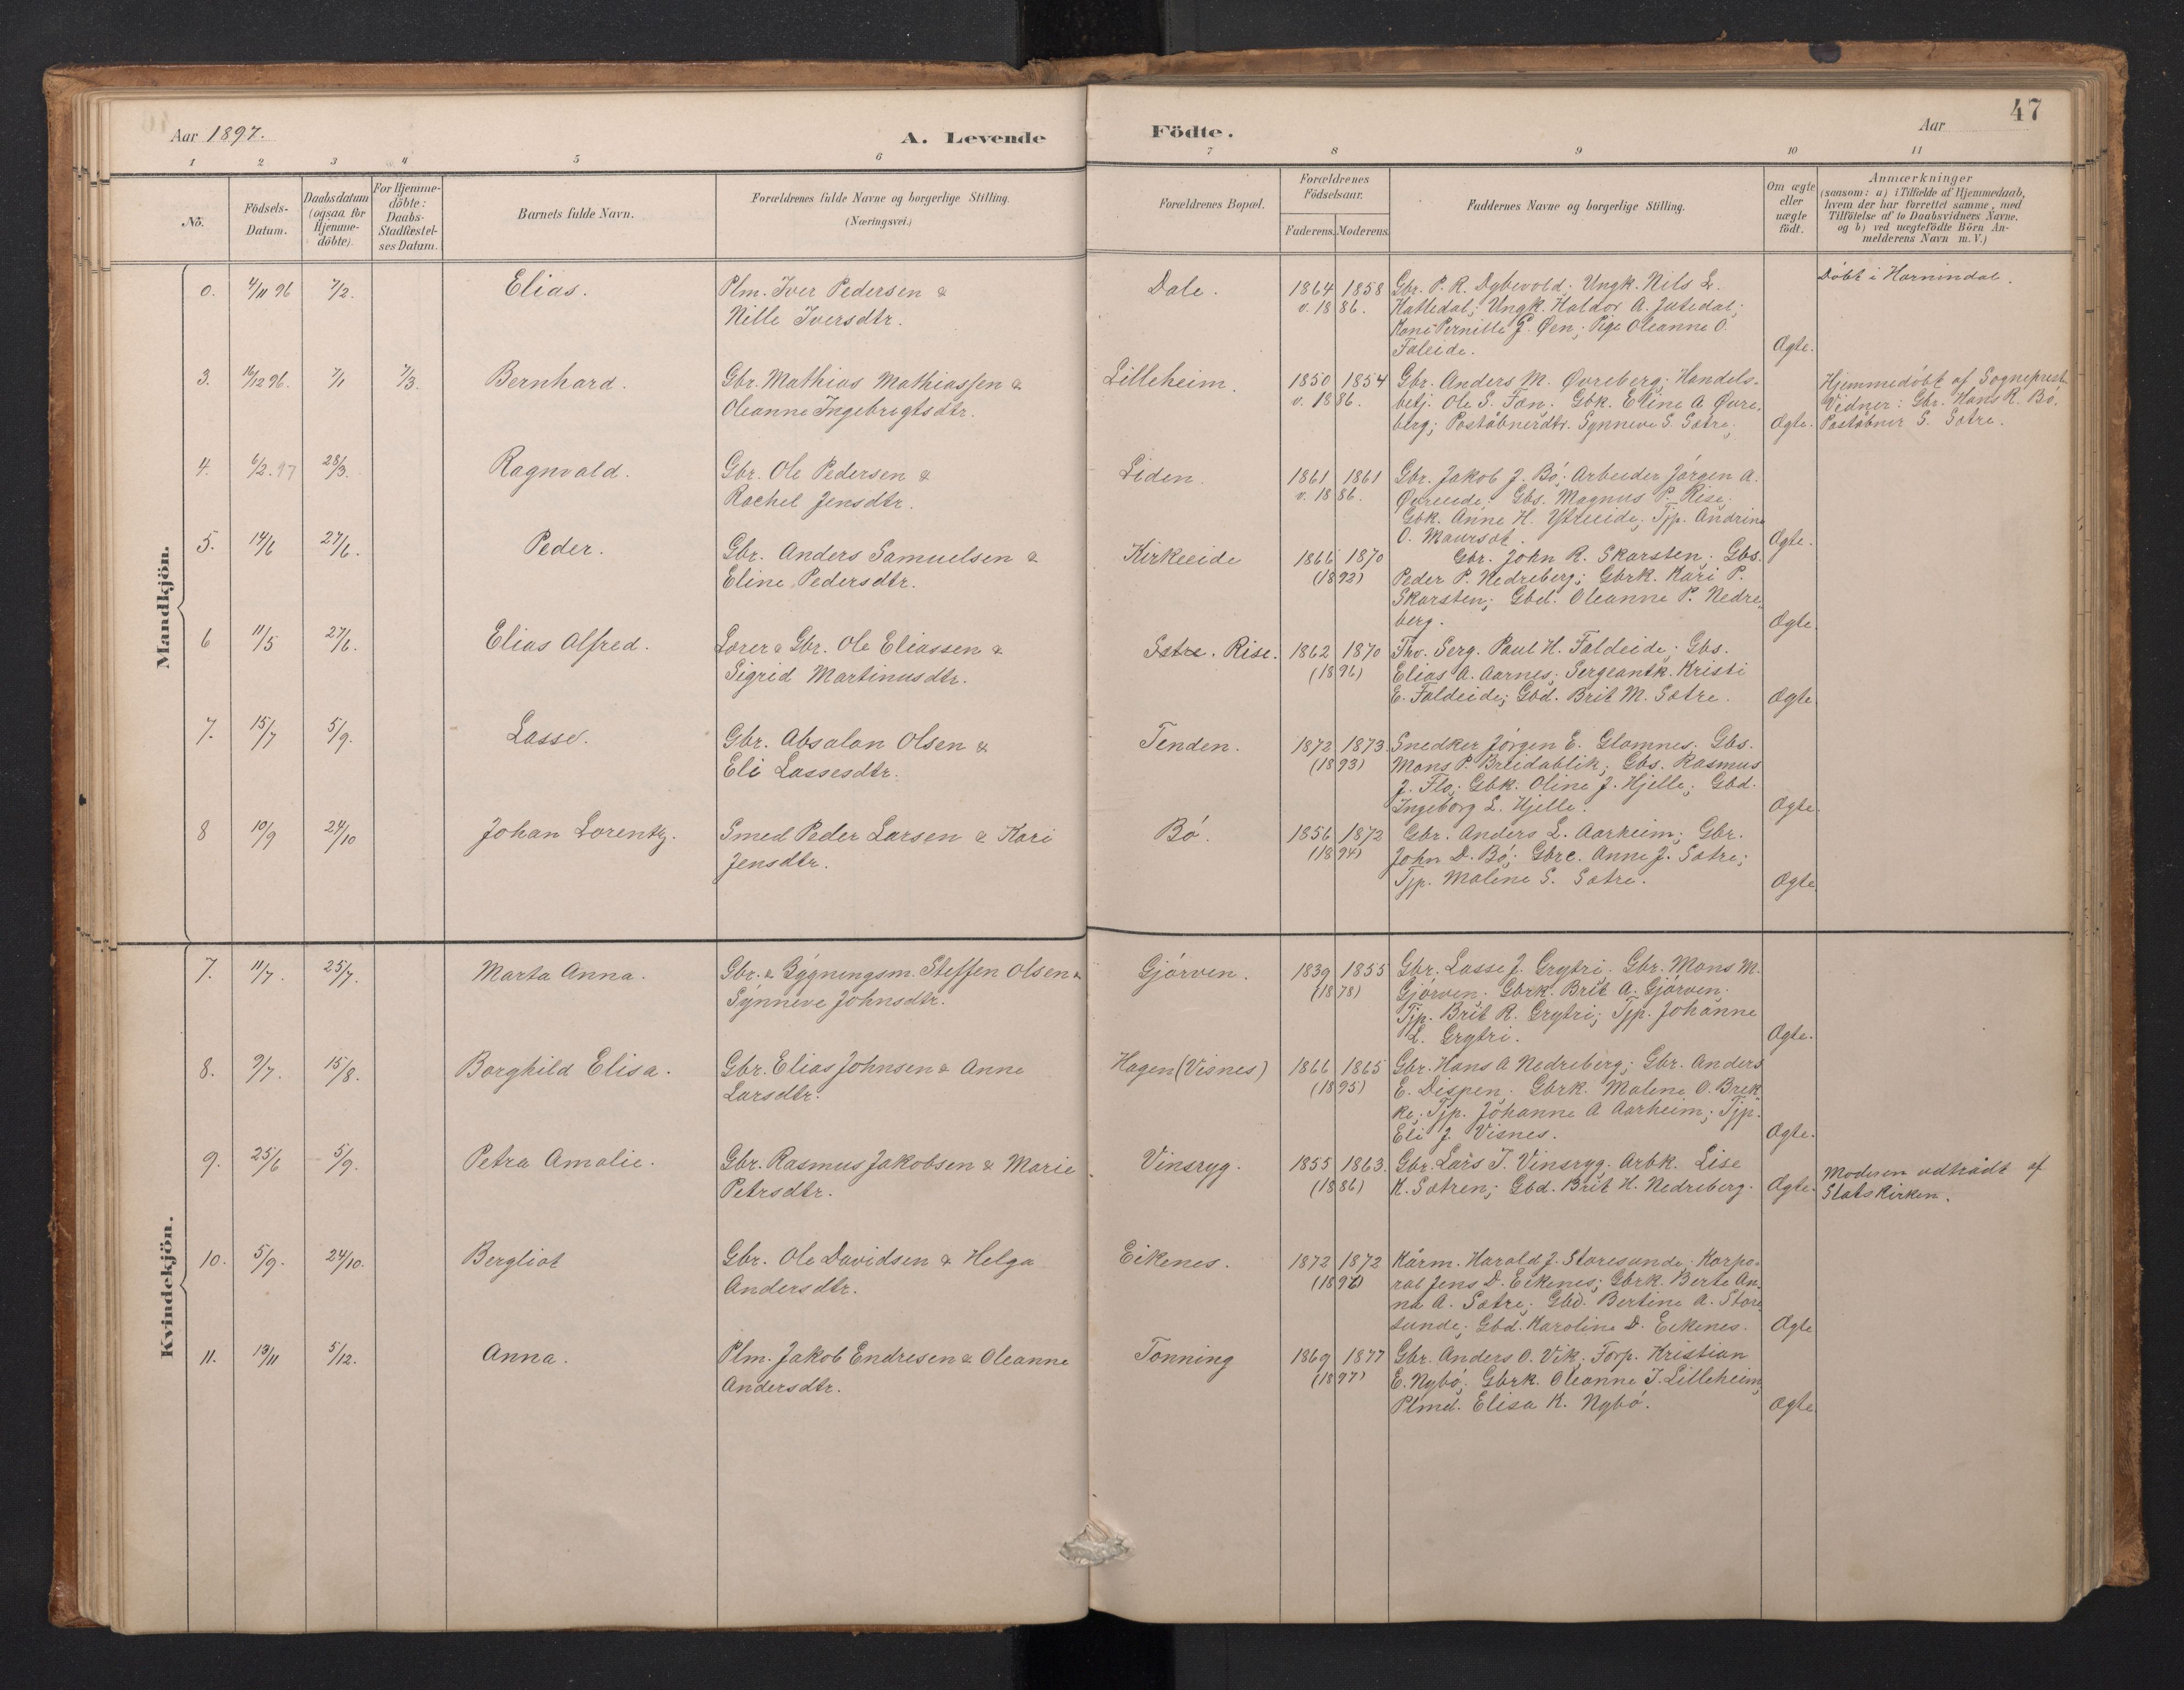 47
Aar 1897.
A. Levende
Födte.
Aar
1 2 3 4 5 6 7 8 9 10 11
No.
Födsels-
Datum.
Daabsdatum
(ogsaa for
Hjemme-
döbte).
For Hjemme-
döbte:
Daabs-
Stadfæstel-
ses Datum.
Barnets fulde Navn.
Forældrenes fulde Navne og borgerlige Stilling.
(Næringsvei.)
Forældrenes Bopæl.
Forældrenes
Födselsaar.
Faderens. Moderens.
Faddernes Navne og borgerlige Stilling.
Om ægte
eller
uægte
födt.
Anmærkninger
(saasom: a) i Tilfælde af Hjemmedaab,
hvem der har forrettet samme, med
Tilföielse af to Daabsvidners Navne.
og b) ved uægtefödte Börn An-
melderens Navn m. V.)
Mandkjön.
0. 4/11 96 7/2. Elias.
Plm. Iver Pedersen &
Nille Iversdtr.
Dale. 1864 1858
v. 1886.
Gbr. P. R. Dybvold; Ungk. Nils L.
Hattedal; Ungk. Haldor A. Jutedal;
Kone Pernille J. Øen; Pige Oleanne O.
Faleide.
Ægte.
Döbt i Hornindal.
3. 16/12 96. 7/1 7/3. Bernhard.
Gbr. Mathias Mathiassen &
Oleanne Ingebrigtsdtr.
Lilleheim. 1850 1854
v. 1886.
Gbr. Anders M. Øvreberg; Handels-
betj. Ole S. Fon; Gbk. Eline A Øvre-
berg; Poståbnerdtr. Synneve S. Sætre.
Ægte.
Hjemmedöbt af Sogneprest.
Vidner: Gbr. Hans R. Bö.
Poståbner S. Sætre.
4. 6/2. 97 28/3. Ragnvald.
Gbr. Ole Pedersen &
Rachel Jensdtr.
Liden. 1861 1861
v. 1886.
Gbr. Jakob J. Bö; Arbeider Jörgen A.
Øvreeide; Gbs. Magnus P. Rise;
Gbk. Anne H. Ytreeide; Tjp. Andrine
O. Maurset.
Ægte.
5. 14/6 27/6. Peder.
Gbr. Anders Samuelsen &
Eline Pedersdtr.
Kirkeeide 1866 1870
(1892)
Gbr. John R. Skarsten; Gbs.
Peder P. Nedreberg; Gbrk. Kari P.
Skarsten; Gbd. Oleanne P. Nedre-
berg.
Ægte.
6 11/5 27/6. Elias Alfred.
Lærer & Gbr. Ole Eliassen &
Sigrid Martinusdtr.
Sætre. Rise. 1862 1870
(1896)
Fhv. Serg. Paul H. Faldeide; Gbs.
Elias A. Aarnes; Sergeantk. Kristi
E. Faldeide; Gbd. Brit M. Sætre.
Ægte
7. 15/7 5/9. Lasse.
Gbr. Absalon Olsen &
Eli Lassesdtr.
Tenden. 1872 1873.
(1893)
Snedker Jörgen E. Glomnes; Gbs.
Mons P. Breidablik; Gbs. Rasmus
J. Flo; Gbk. Oline J. Hjelle; Gbd.
Ingeborg L. Hjelle.
Ægte.
8 10/9 24/10 Johan Lorentz.
Smed Peder Larsen & Kari
Jensdtr.
Bö. 1856 1872
(1894)
Gbr. Anders L. Aarheim; Gbr.
John D. Bö; Gbre. Anne J. Sætre;
Tjp. Malene S. Sætre.
Ægte
Kvindekjön.
7. 11/7. 25/7. Marta Anna.
Gbr. & Bygningsm. Steffen Olsen &
Synneve Johnsdtr.
Gjörven. 1839 1855
(1878)
Gbr. Lasse J. Grytri; Gbr. Mons M.
Gjörven; Gbrk. Brit A. Gjörven.
Tjp. Brit R. Grytri; Tjp. Johanne
L. Grytri.
Ægte.
8. 9/7. 15/8. Borghild Elisa.
Gbr. Elias Johnsen & Anne
Larsdtr.
Hagen (Visnes) 1866 1865
(1895)
Gbr. Hans A Nedreberg; Gbr. Anders
E. Dispen; Gbrk. Malene O. Brek-
ke; Tjp. Johanne A Aarheim; Tjp.
Eli J. Visnes.
Ægte.
9. 25/6 5/9. Petra Amalie.
Gbr. Rasmus Jakobsen & Marie
Petrsdtr.
Vinsryg. 1855 1863.
(1886)
Gbr. Lars J. Vinsryg. Arbk. Lise
K. Sætren; Gbd. Brit H. Nedreberg.
Ægte.
Moderen udtrådt af
Statskirken.
10. 5/9. 24/10. Bergliot
Gbr. Ole Davidsen & Helga
Andersdtr.
Eikenes. 1872 1872
Kårm. Harald J. Staresunde; Korpo-
ral Jens D. Eikenes; Gbrk. Berte An-
na A. Sætre; Gbd. Bertine A. Stare-
sunde; Gbd. Karoline D. Eikenes.
Ægte
11. 13/11 5/12. Anna.
Plm. Jakob Endresen & Oleanne
Andersdtr.
Tonning 1869 1877
(1897)
Gbr. Anders O. Vik; Forp. Kristian
E. Nybö; Gbrk. Oleanne J. Lilleheim;
Plmd. Elisa K. Nybö.
Ægte.